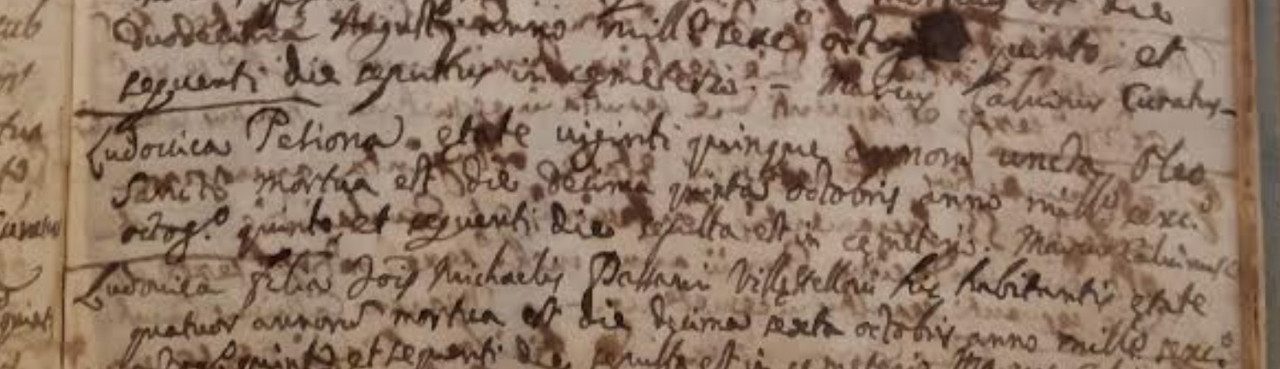 est die
duodecima Augusti anno mille sexc.o octog quinto, et
sequenti die sepultus in cemeterio. – Marcus Calvinus Curatus –
Ludovica Petiona etate viginti quinque annorū uncta Oleo
Sancto mortua est die decima quinta octobris anno mille sexc.o
octog.o quinto, et sequenti die sepulta est in cemeterio. Marcus Calvinus C
Ludovica filia Jois Michaelis Passani hic habitantis etate
quatuor annorū mortua est die decima sexta octobris anno mille sexc.o
quinto et sequenti die sepulta est in cemeterio